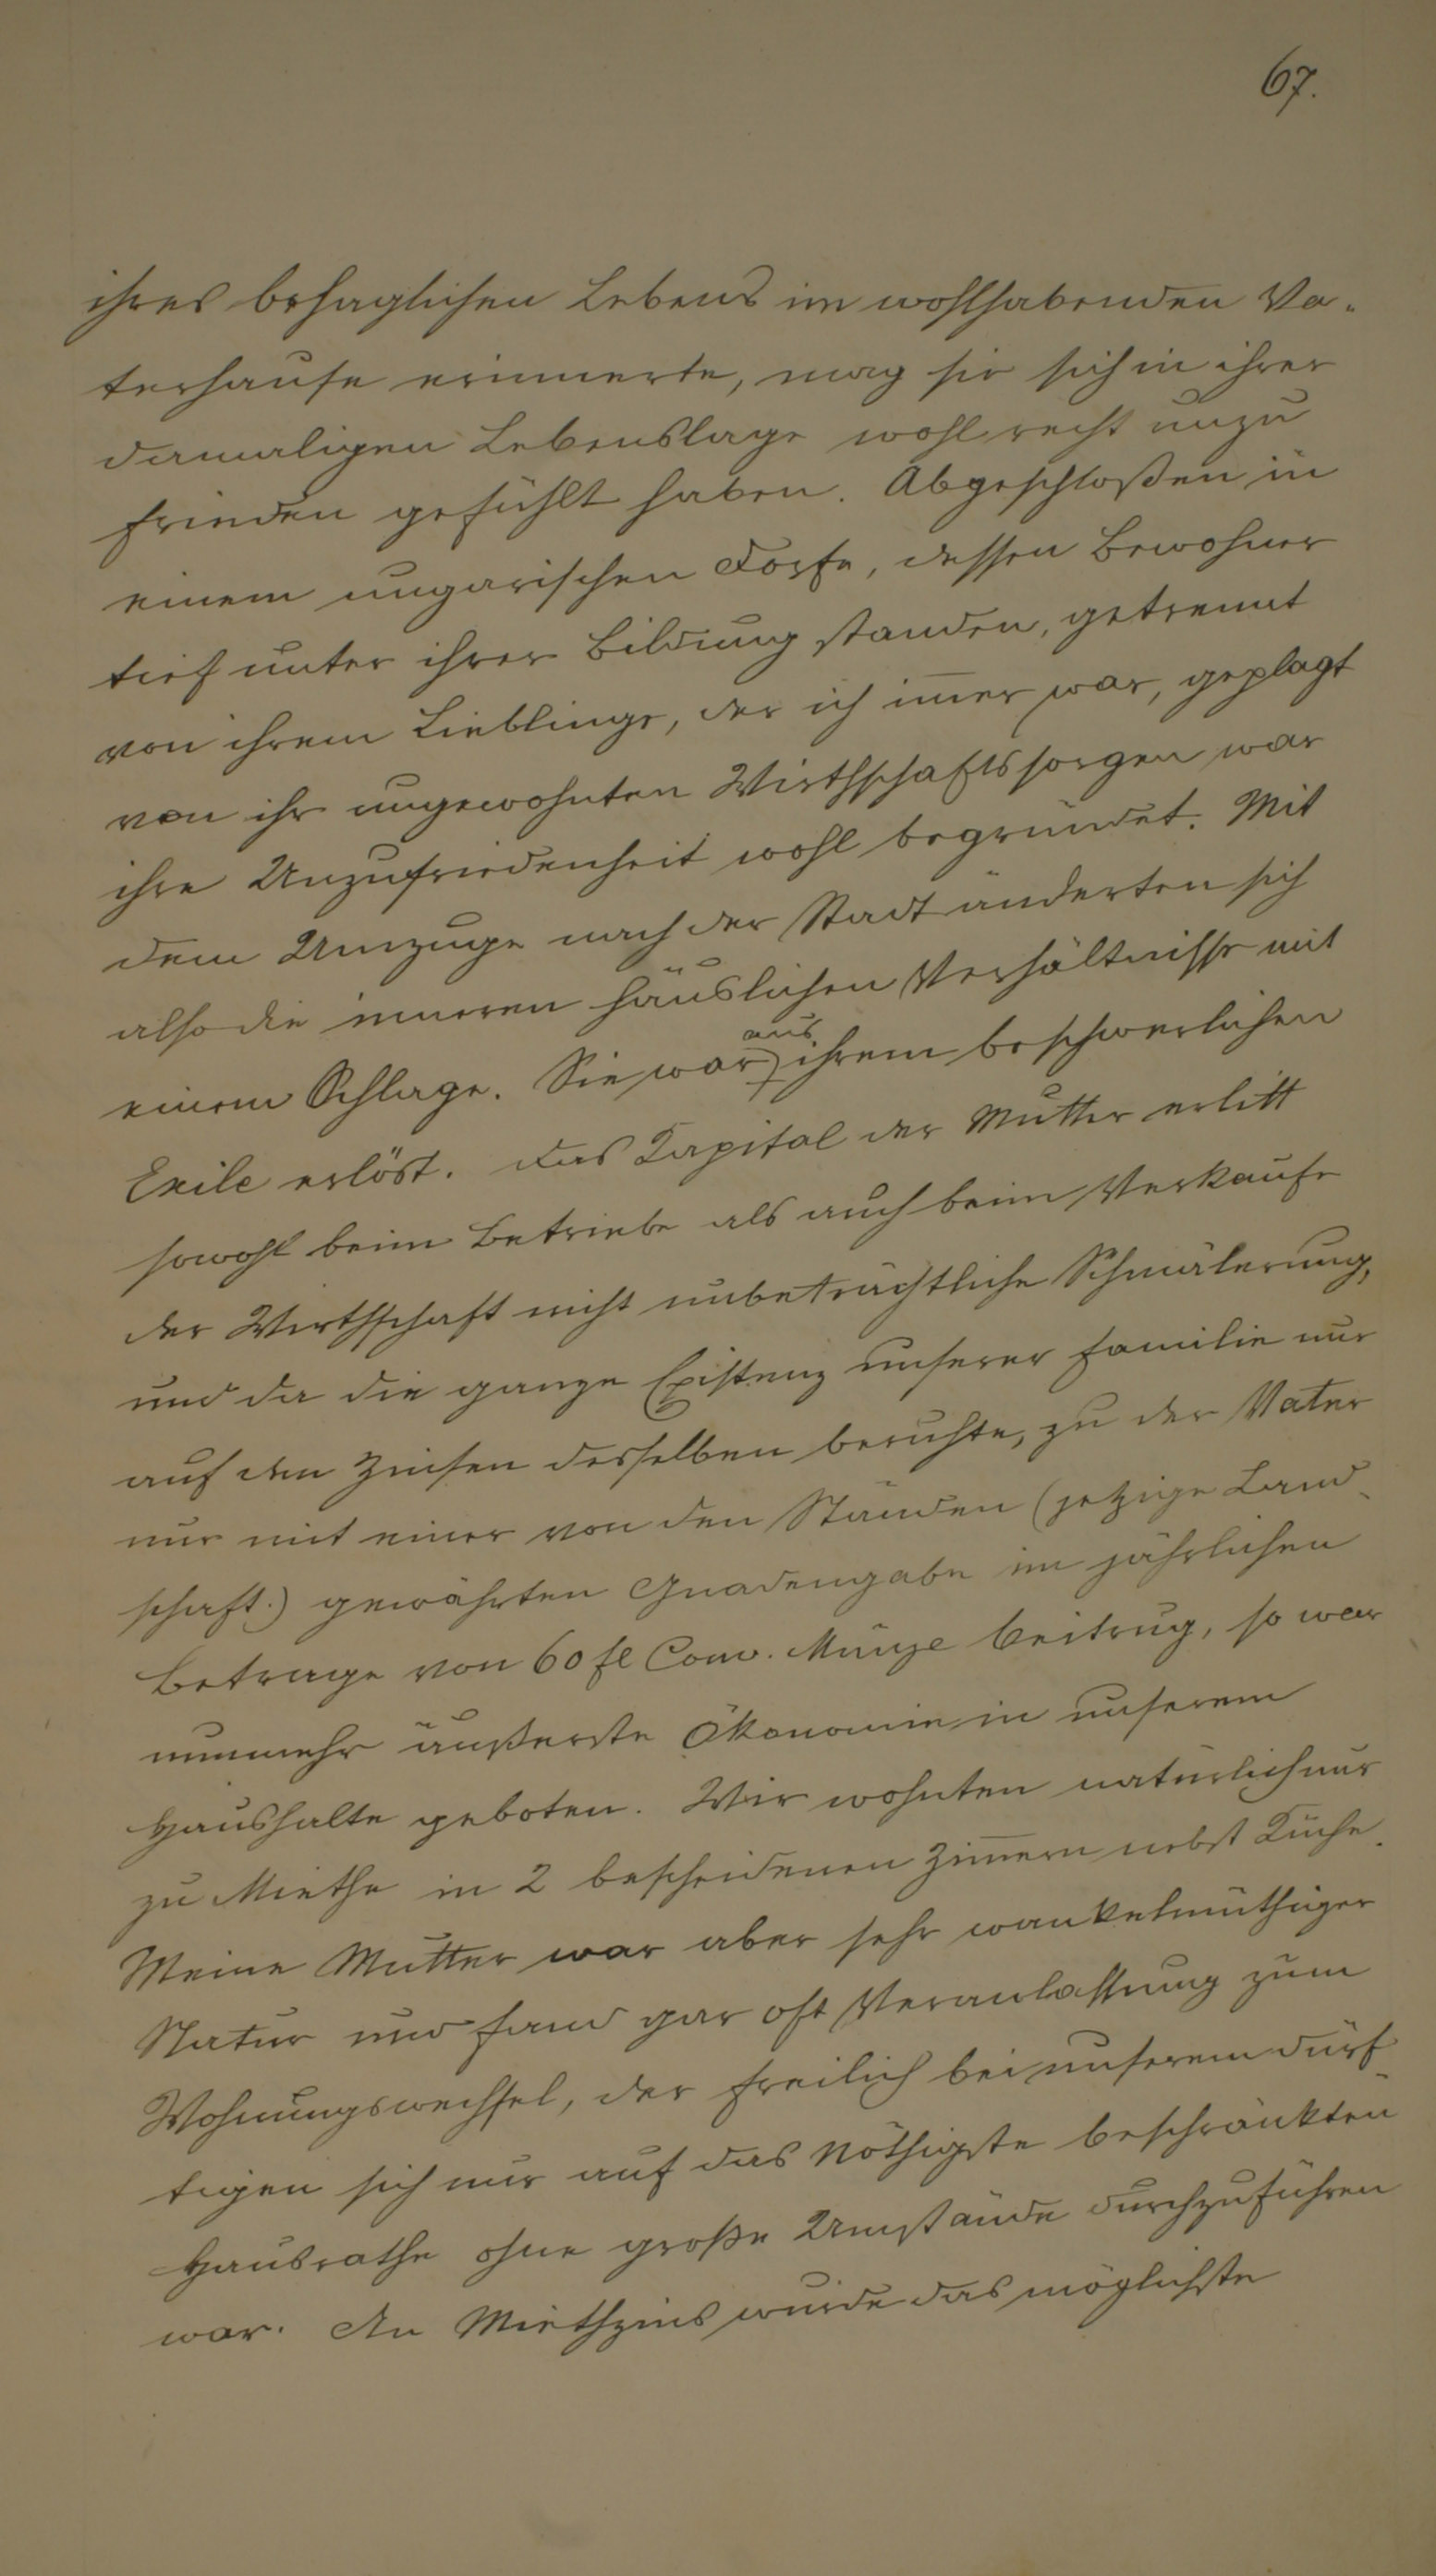 67.
ihres behaglichen Lebens im wohlhabenden Va-
terhause erinnerte, mag sie sich in ihrer
damaligen Lebenslage wohl recht unzu
frieden gefühlt haben. Abgeschloßen in
einem ungarischen Dorfe, dessen Bewohner
tief unter ihrer Bildung standen, getrennt
von ihrem Lieblinge, der ich im̅er war, geplagt
von ihr ungewohnten Wirthschaftssorgen war
ihre Unzufriedenheit wohl begründet. Mit
dem Umzuge nach der Stadt änderten sich
also die inneren häuslichen Verhältnisse mit
einem Schlage. Sie war aus ihrem beschwerlichen
Exile erlöst. Das Kapital der Mutter erlitt
sowohl beim Betriebe als auch beim Verkaufe
der Wirthschaft nicht unbeträchtliche Schmälerung,
und da die ganze Existenz unserer Familie nur
auf den Zinsen desselben beruhte, zu der Vater
nur mit einer von den Ständen (jetzige Land-
schaft.) gewährten Gnadengabe im jährlichen
Betrage von 60 fl Conv. Münze beitrug, so war
nunmehr äußerste Ökonomie in unserem
Haushalte geboten. Wir wohnten natürlich nur
zu Miethe in 2 bescheidenen Zim̅ern nebst Küche.
Meine Mutter war aber sehr wankelmüthiger
Natur und fand gar oft Veranlassung zum
Wohnungswechsel, der freilich bei unserem dürf-
tigen sich nur auf das Nöthigste beschränkten
Hausrathe ohne große Umstände durchzuführen
war. An Miethzins wurde das möglichste